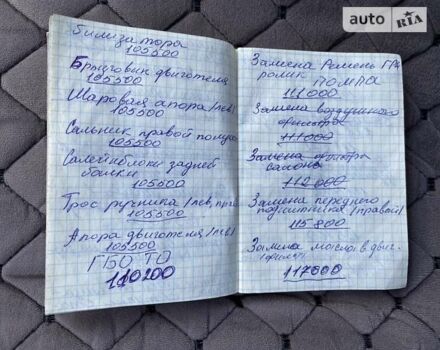 auto RIA
билизатора
105500
Брызговик двигателя
105500
Шаровая апора /лев/
105500
Сальник правой полуоси
105500
Салентблоки задней
балки
105500
Трос ручника /лев, прав
105500
Апора двигателя /лев/
105500
ГБО ТО
110200
Замена Ремень ГРМ
ролик
ПОМПА
111000
Замена воздушного
фильтра
111000
Замена фильтра
салона
112000
Замена переднего
подшипника /правой/
115800
Замена масла в двиг.
117000